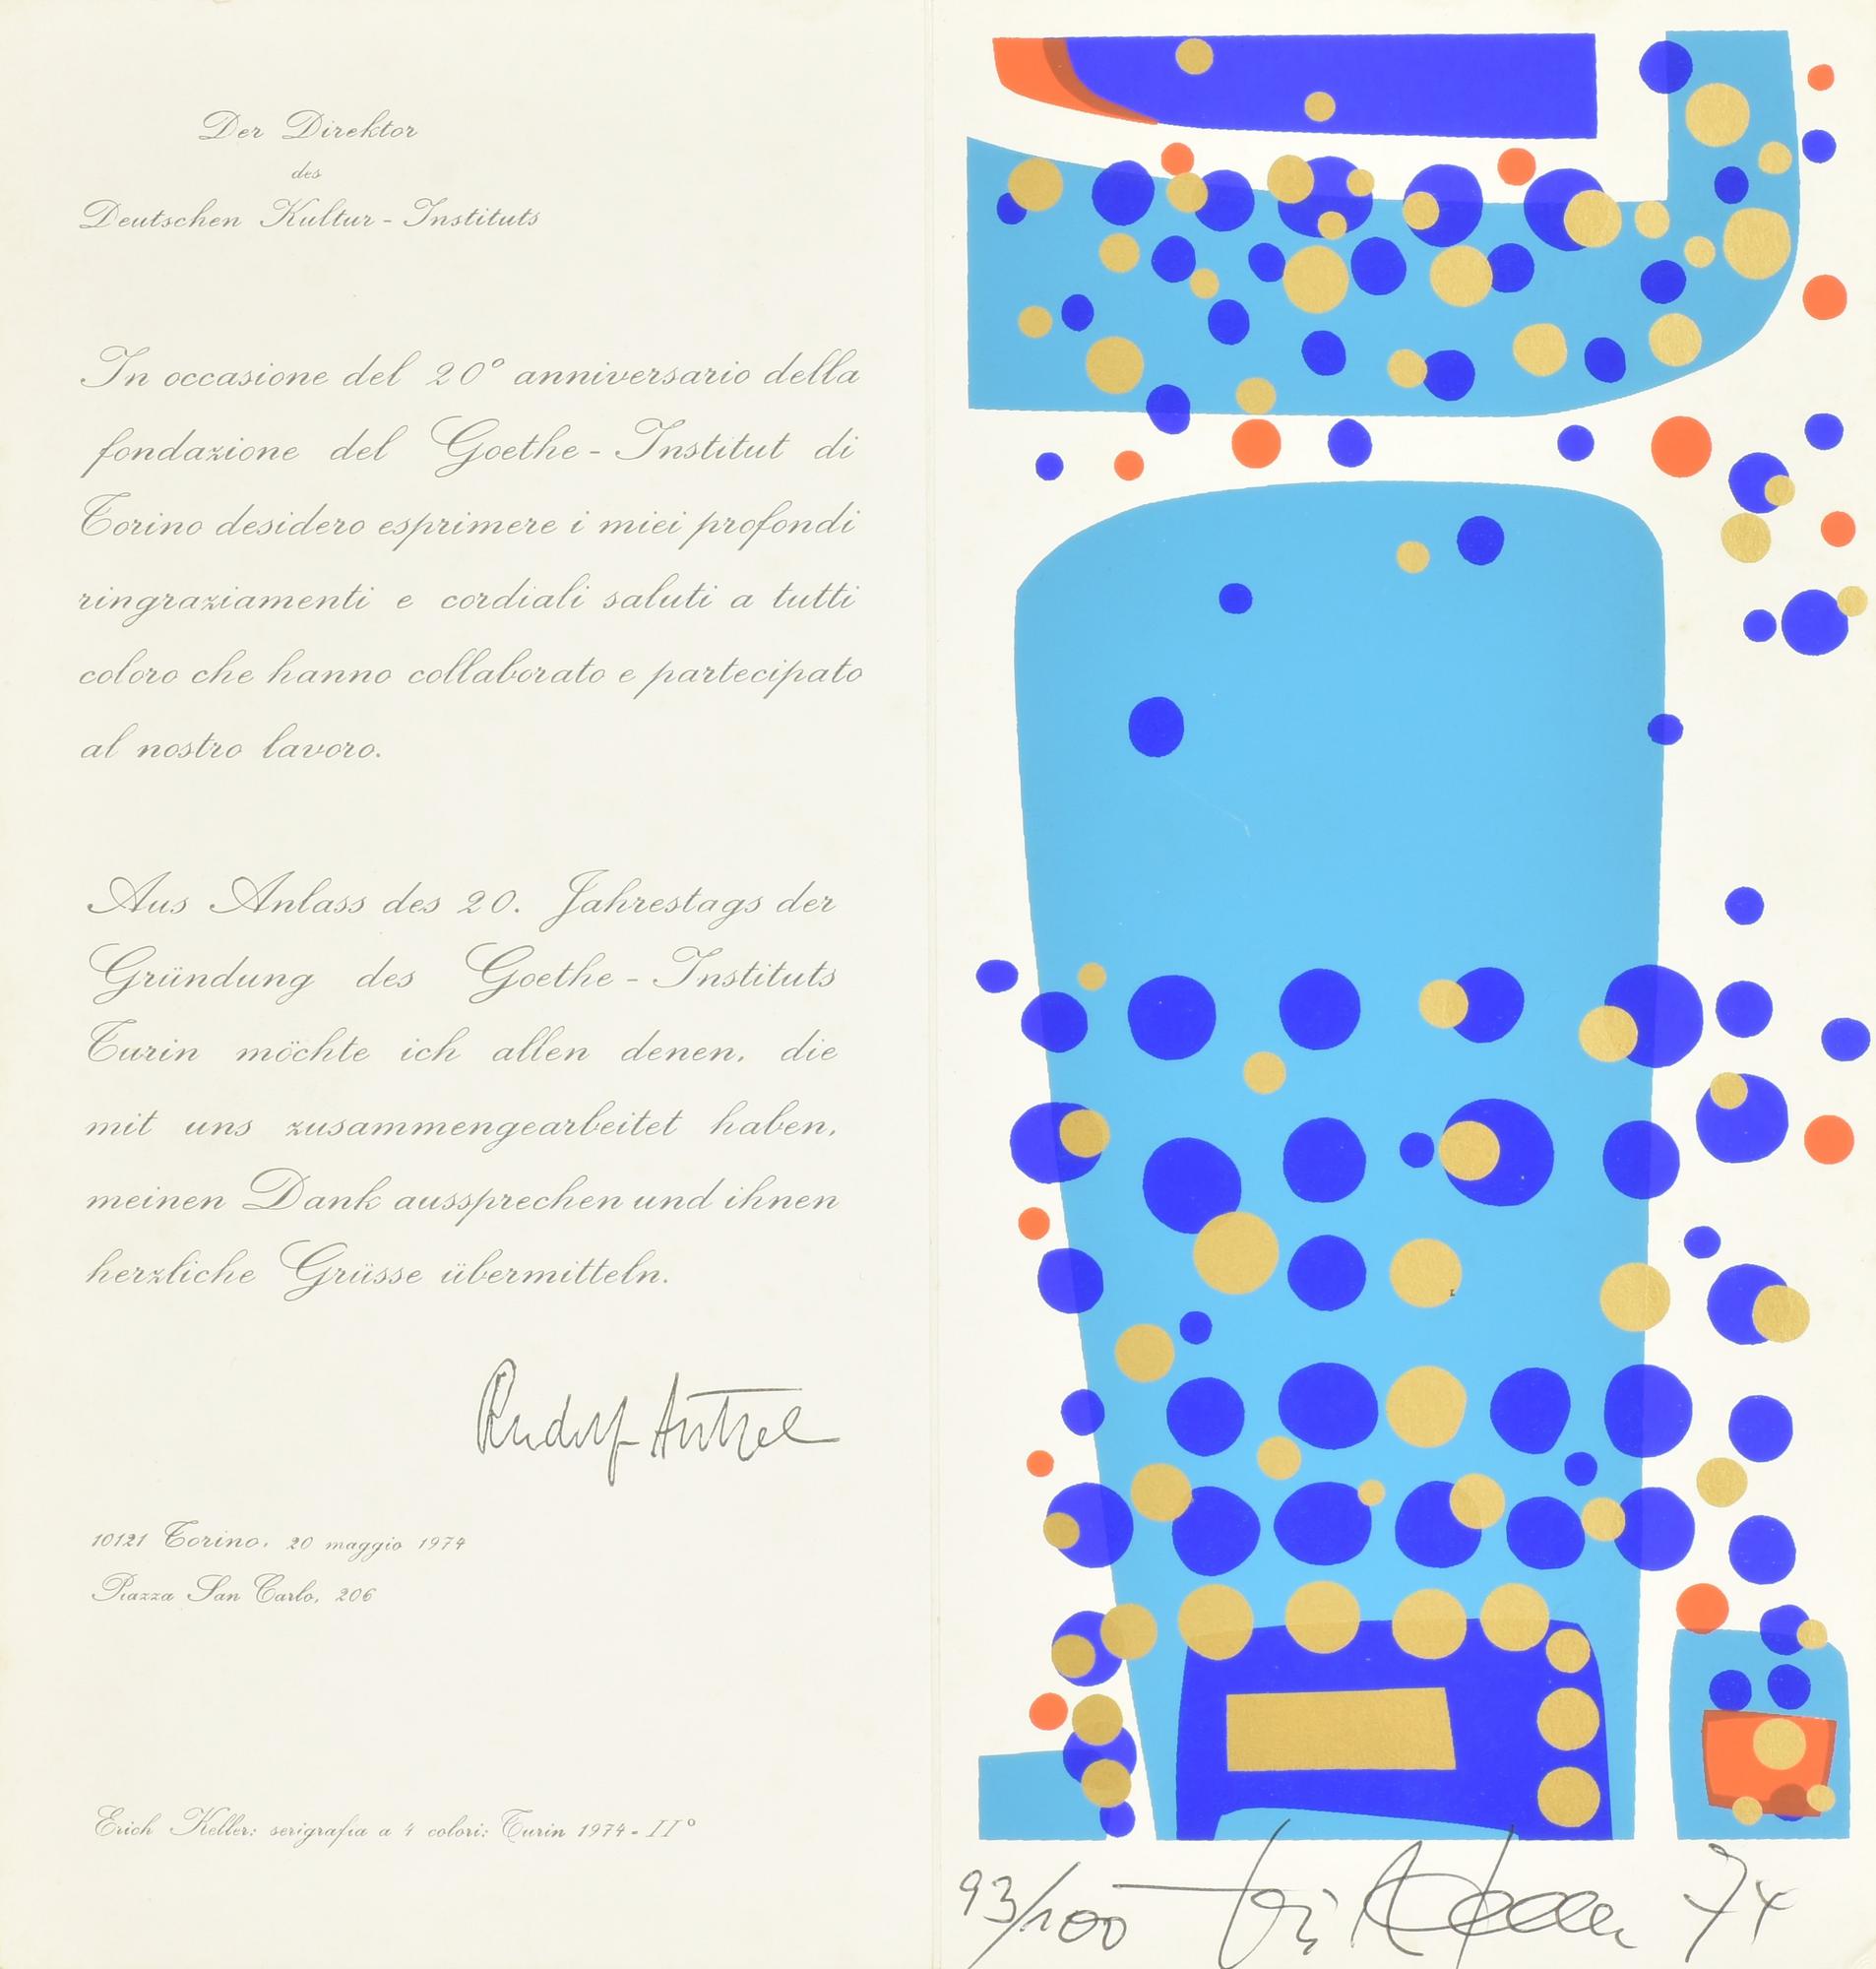 Der Direktor
des
Deutschen Kultur-Instituts
In occasione del 20° anniversario della
fondazione del Goethe-Institut di
Torino desidero esprimere i miei profondi
ringraziamenti e cordiali saluti a tutti
coloro che hanno collaborato e partecipato
al nostro lavoro.
Aus Anlass des 20. Jahrestags der
Gründung des Goethe-Instituts
Turin möchte ich allen denen, die
mit uns zusammengearbeitet haben,
meinen Dank aussprechen und ihnen
herzliche Grüsse übermitteln.
Rudolf
10121 Torino, 20 maggio 1974
Piazza San Carlo, 206
Erich Keller: serigrafia a 4 colori: Turin 1974 - II°
93/100 Keller 74